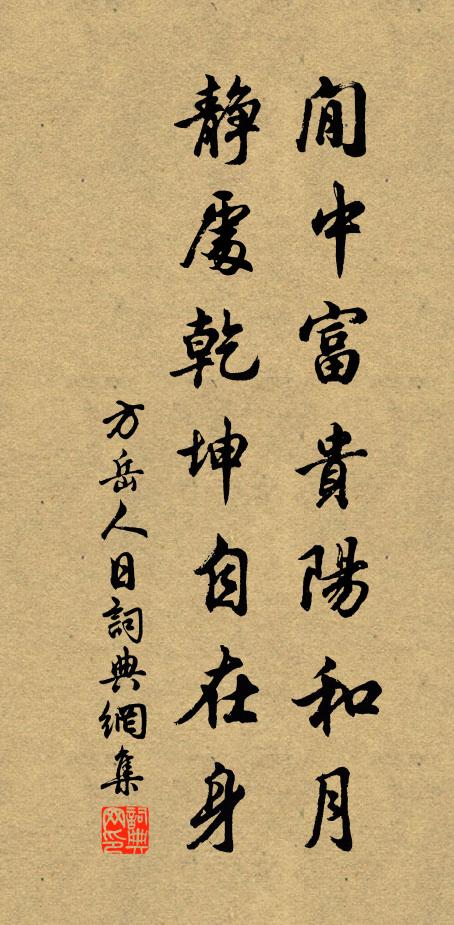 閒中富貴陽和月
靜處乾坤自在身
方岳人日詞典網集
詞典网印